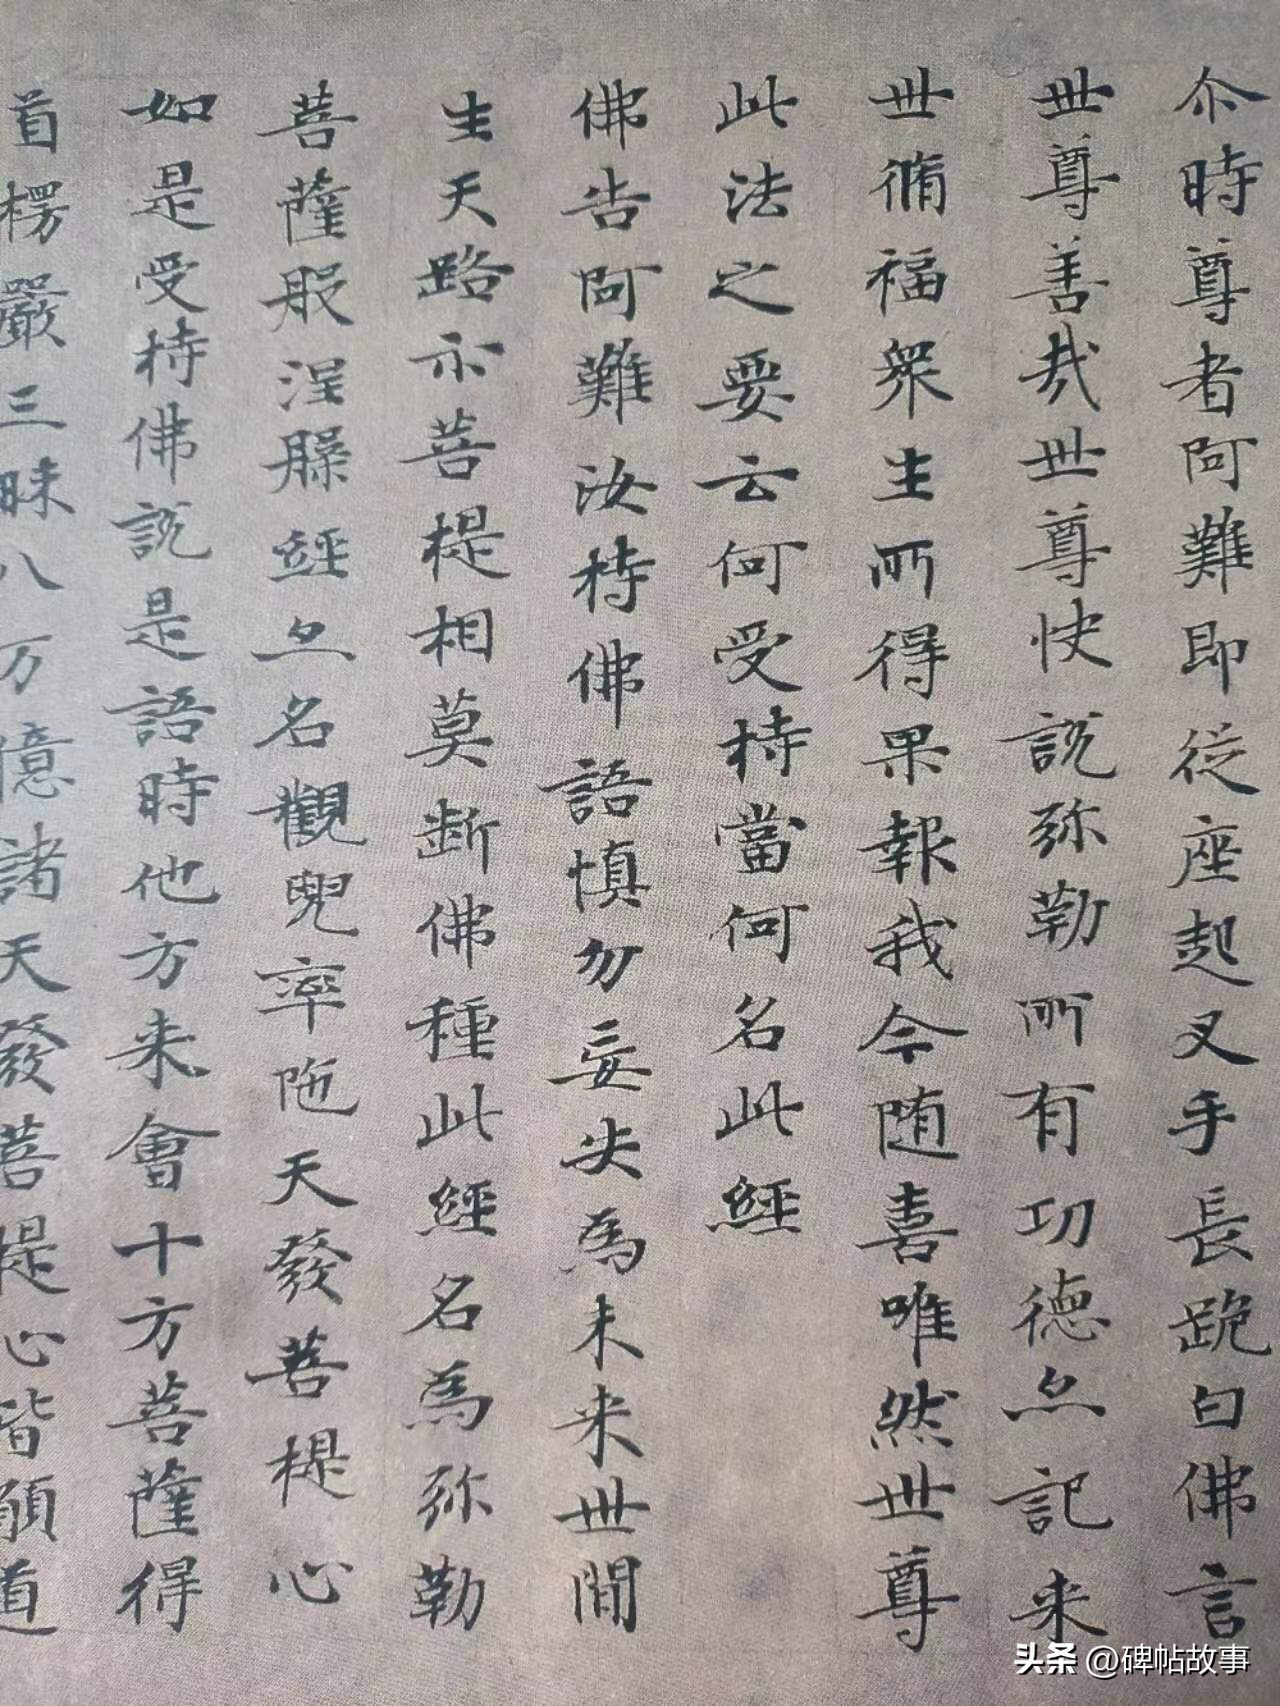 尒時尊者阿難即從座起叉手長跪白佛言
世尊善哉世尊快說弥勒所有功德亦記来
世脩福衆生所得果報我今随喜唯然世尊
此法之要云何受持當何名此經
佛告阿難汝持佛語慎勿妄失為未来世開
生天路示菩提相莫断佛種此經名為弥勒
菩薩般涅槃經亦名觀兜率陁天發菩提心
如是受持佛說是語時他方来會十方菩薩得
首楞嚴三昧八万億諸天發菩提心皆願道
头条 @碑帖故事